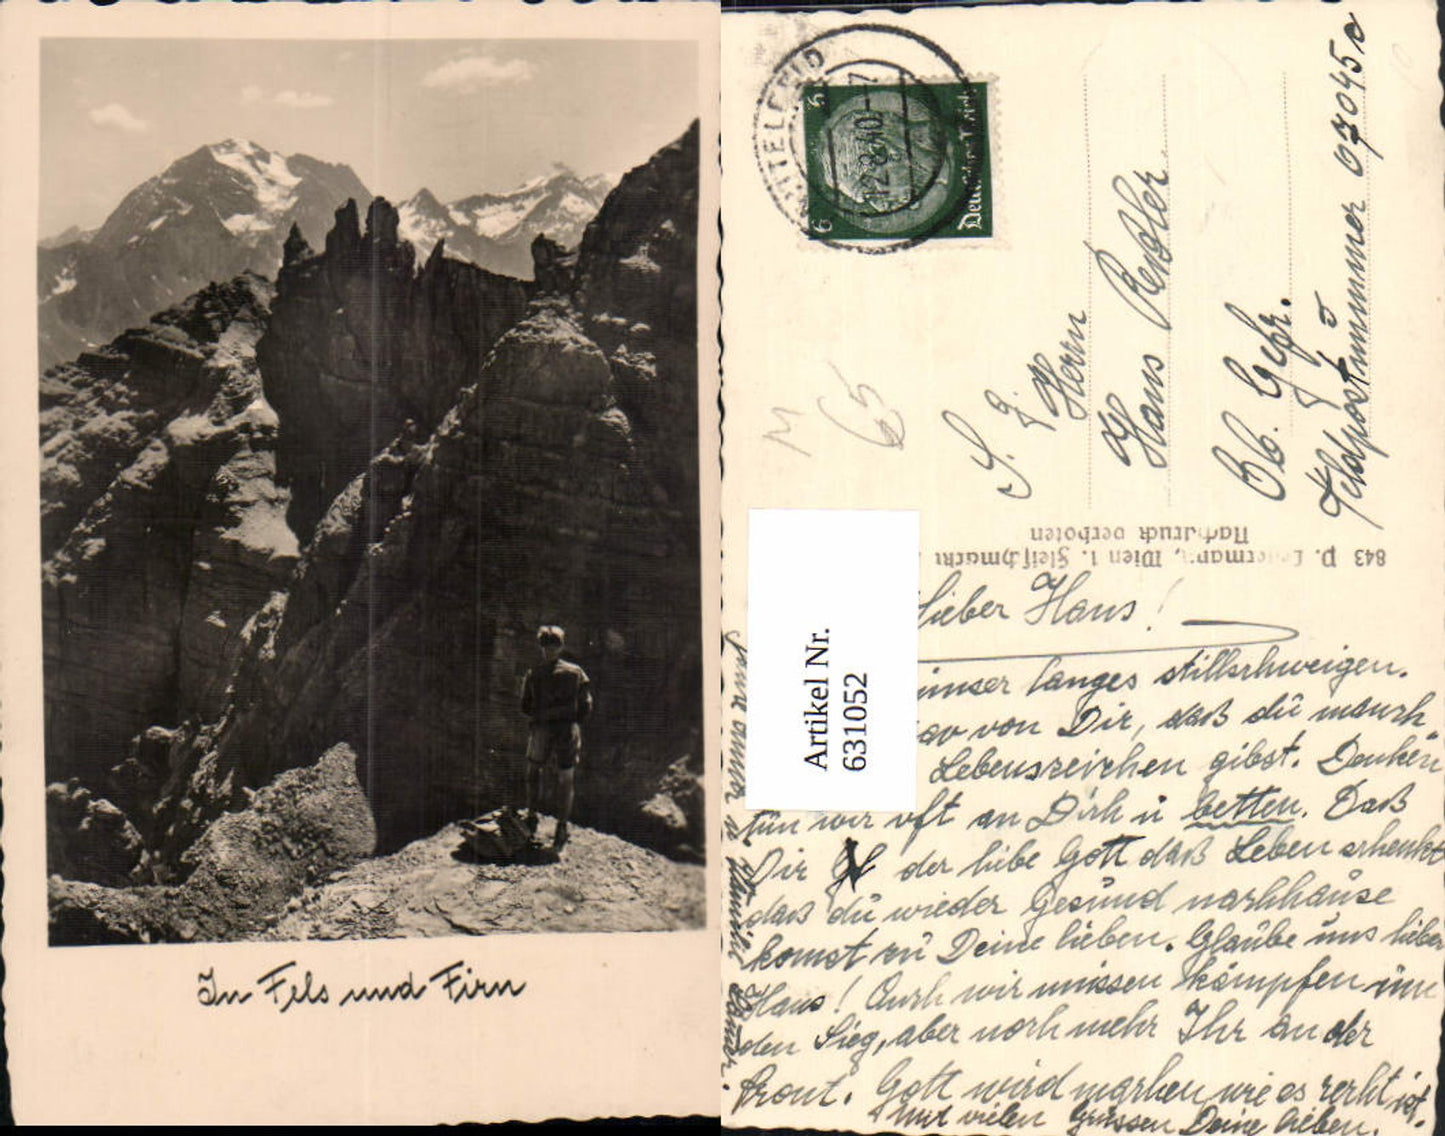 In Fels und Firn
KNITTELFELD
12.8.40-7
6
6
Deutsches Reich
S. g. Herrn
Hans
Ob. Gefr.
Feldpostnummer 07045 c
M
65
843 P. Ledermann, Wien 1. Fleischmarkt
Nachdruck verboten
Artikel Nr.
631052
Lieber Hans!
unser langes stillschweigen.
von Dir, daß du manch
Lebenszeichen gibst. Denken
tun wir oft an Dich u betten. Daß
Dir der liebe Gott daß Leben schenkt
daß du wieder Gesund nachhause
komst zu Deine lieben. Glaube uns lieber
Hans! Auch wir müssen kämpfen um
den Sieg, aber noch mehr Ihr an der
Front. Gott wird machen wie es recht ist.
mit vielen Grüssen Deine lieben.